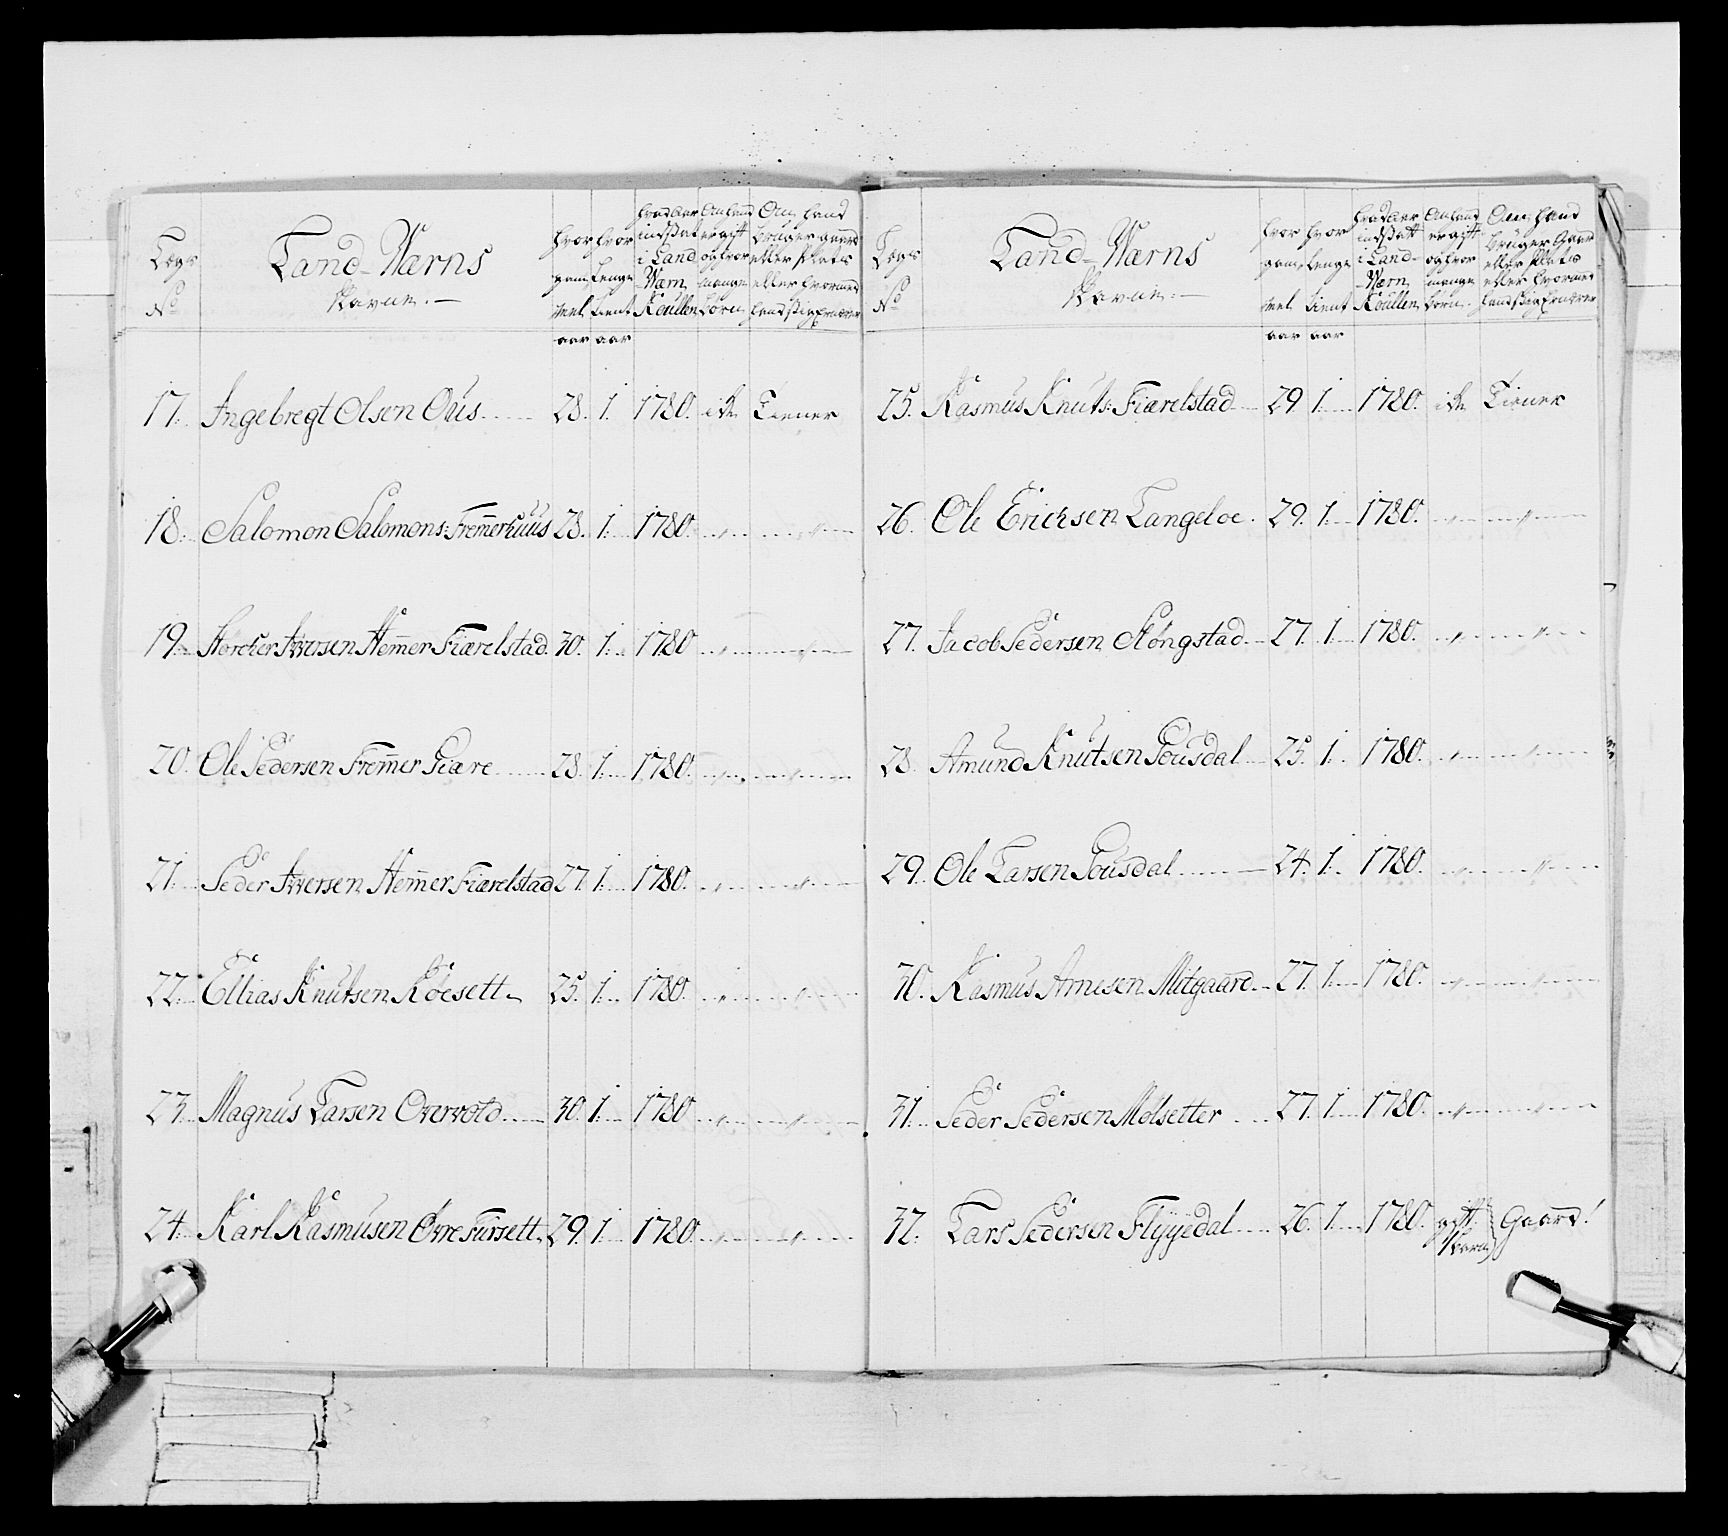 Legs No
Land-Værns
Navne.
hvor gamel aar
hvor Lenge tient aar
hvad aar indsatt i Land-Wærn Roullen
Om hand er gift og hvor mange børn
Om hand bruger gaard eller Plads eller hvormed hand sig ernærer
17. Ingebregt Olsen Ous 28. 1. 1780. icke Tiener
18. Salomon Salomons: Fremerhuus 28. 1. 1780. " "
19. Iversen Hemer Fiærelstad 30. 1. 1780 " "
20. Ole Pedersen Fremer Giære 28. 1. 1780. " "
21. Peder Iversen Hemer Fiærelstad 27. 1. 1780. " "
22. Ellias Knutsen Röesett 25. 1. 1780. " "
23. Magnus Larsen Overvold 30. 1. 1780 " "
24. Karl Rasmusen Øvre Fursett 29. 1. 1780. " "
Legs No
Land-Wærns
Navne.
hvor gamel aar
hvor Lenge tient aar
hvad aar indsatt i Land-Wærn Roullen
Om hand er gift og hvor mange børn
Om hand bruger Gaard eller Plads eller hvormed hand sig ernærer
25. Rasmus Knuts: Fiærelstad 29 1. 1780. icke Tiener
26. Ole Ericksen Langeloe. 29. 1. 1780. " "
27. Jacob Pedersen Stöngstad 27. 1. 1780. " "
28. Amund Knutsen Gousdal 25. 1. 1780. " "
29. Ole Larsen Gousdal 24. 1. 1780. " "
30. Rasmus Arnesen Mitgaard 27. 1. 1780. " "
31. Peder Pedersen Molsetter 27. 1. 1780. " "
32. Lars Pedersen Flyyedal 26. 1. 1780. gift. 1 barn Gaard!